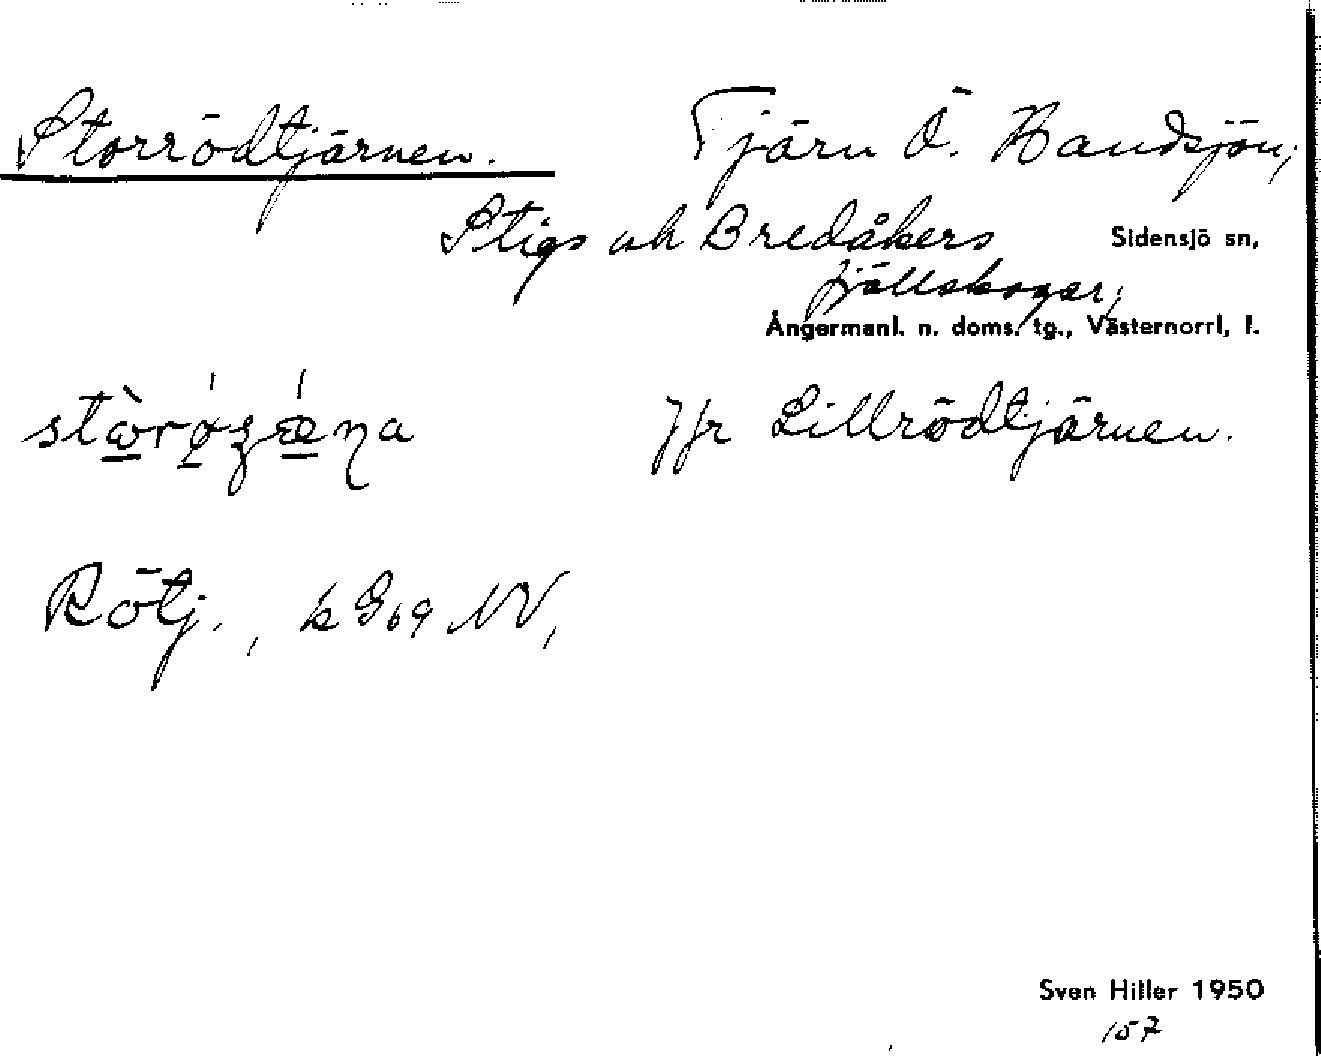 Storrödtjärnen. Tjärn Ö. Handsjön,
Stigs och Bredåkers Sidensjö sn,
fjällskogar,
Ångermanl. n. doms. tg., Västernorrl, l.
Jfr Lillrödtjärnen.
Rötj., k G69 NV,
Sven Hiller 1950
157